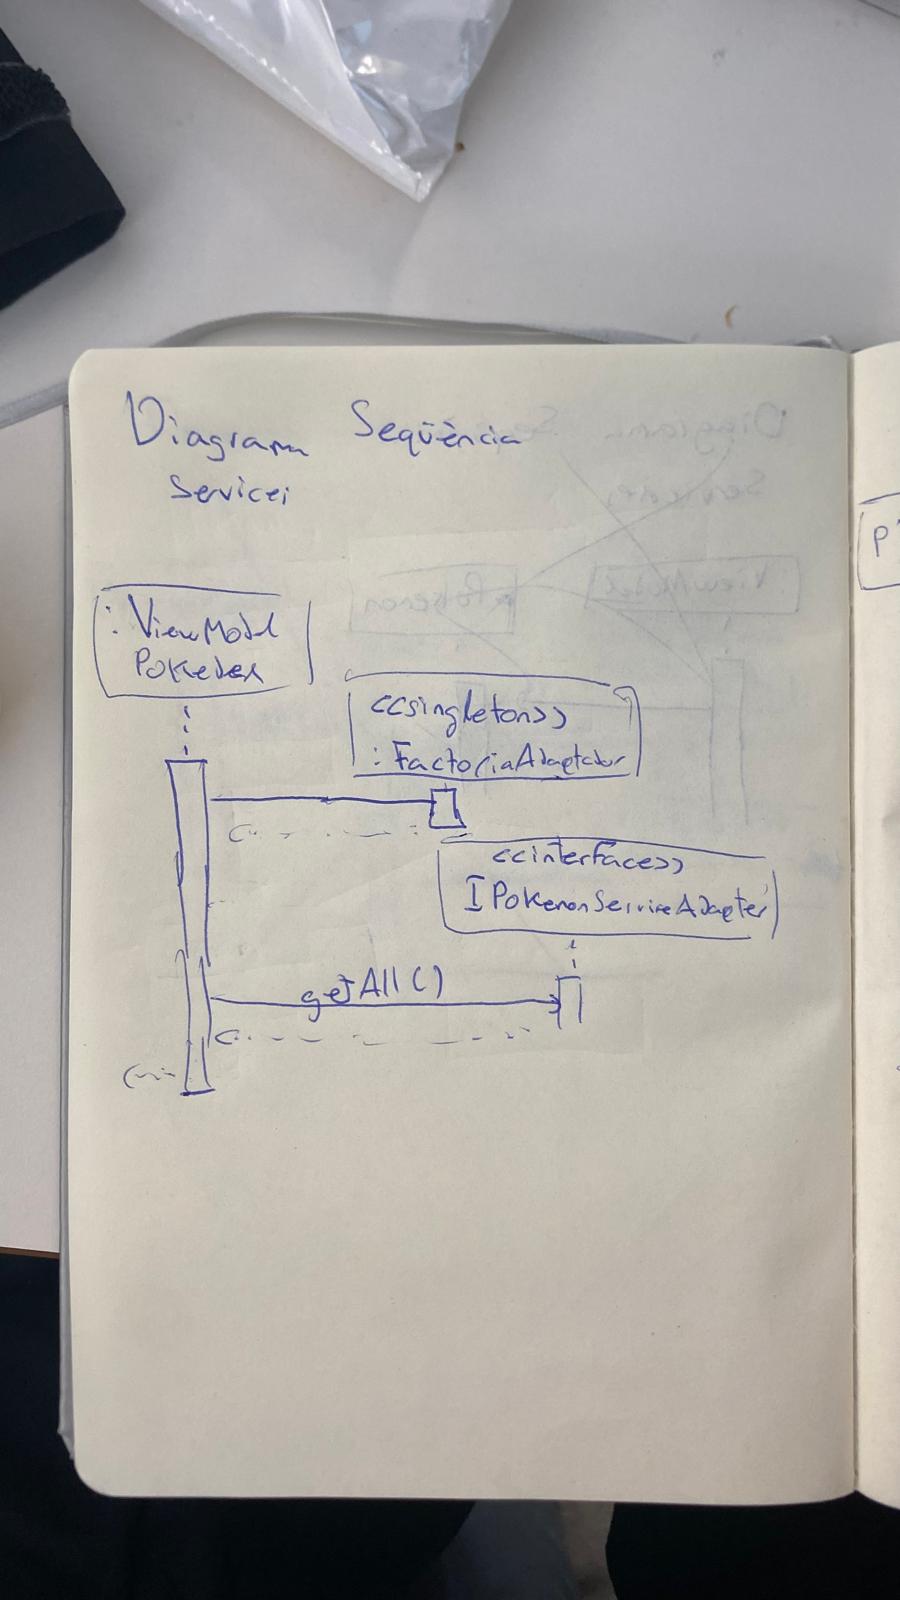 Diagrama Seqüència
Servicei
: ViewModel
Pokedex
<<singleton>>
: FactoriaAdaptador
<<interface>>
IPokemonServiceAdapter
getAll()
P